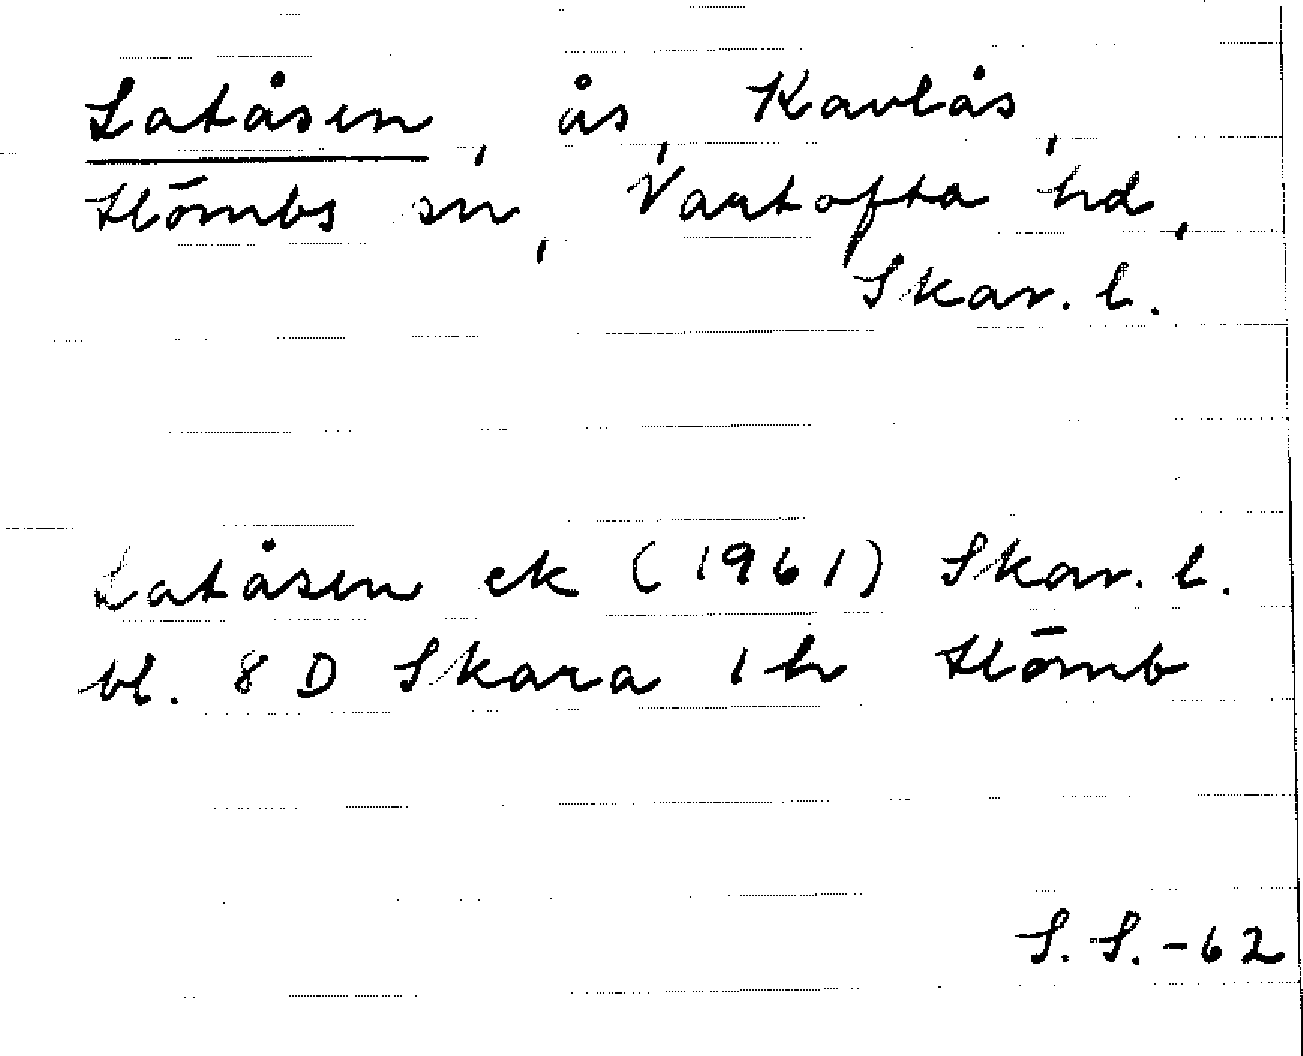 Latåsen, ås, Kavlås,
Hömbs sn, Vartofta hd,
Skar. l.
Latåsen ek (1961) Skar. l.
bl. 8 D Skara 1 h Hömb
S. S. -62